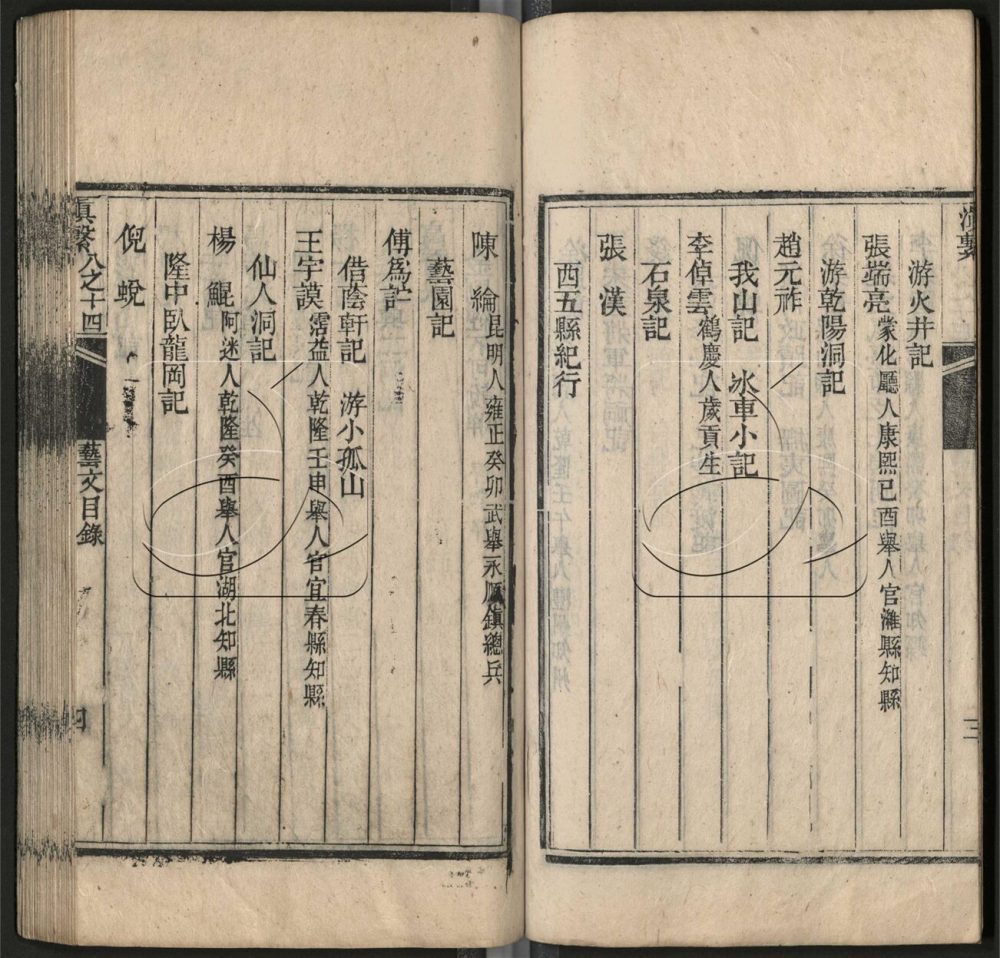 游火井記
張端亮蒙化廳人康熙己酉舉人官濰縣知縣
游乾陽洞記
趙元祚
我山記 冰車小記
李倬雲鶴慶人歲貢生
石泉記
張漢
西五縣紀行
三
陳綸昆明人雍正癸卯武舉永順鎮總兵
藝園記
傅爲詝
借蔭軒記 游小孤山
王宇謨霑益人乾隆壬申舉人官宜春縣知縣
仙人洞記
楊鯤阿迷人乾隆癸酉舉人官湖北知縣
隆中臥龍岡記
倪蛻
滇繫八之十四
藝文目錄
四